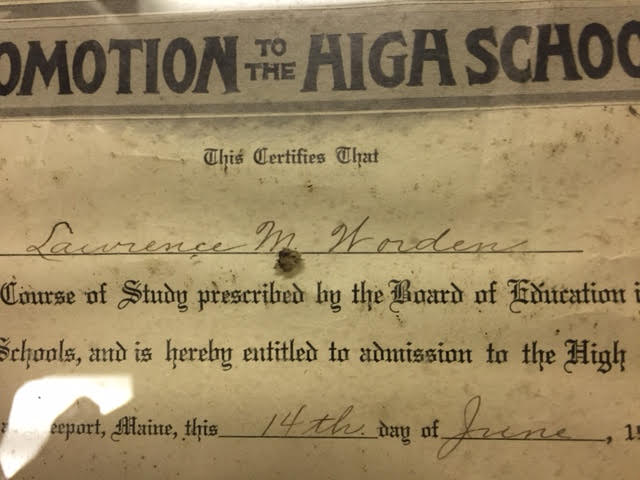 OMOTION TO THE HIGH SCHOO
This Certifies That
Lawrence M. Worden
Course of Study prescribed by the Board of Education i
Schools, and is hereby entitled to admission to the High
eeport, Maine, this 14th. day of June, 19